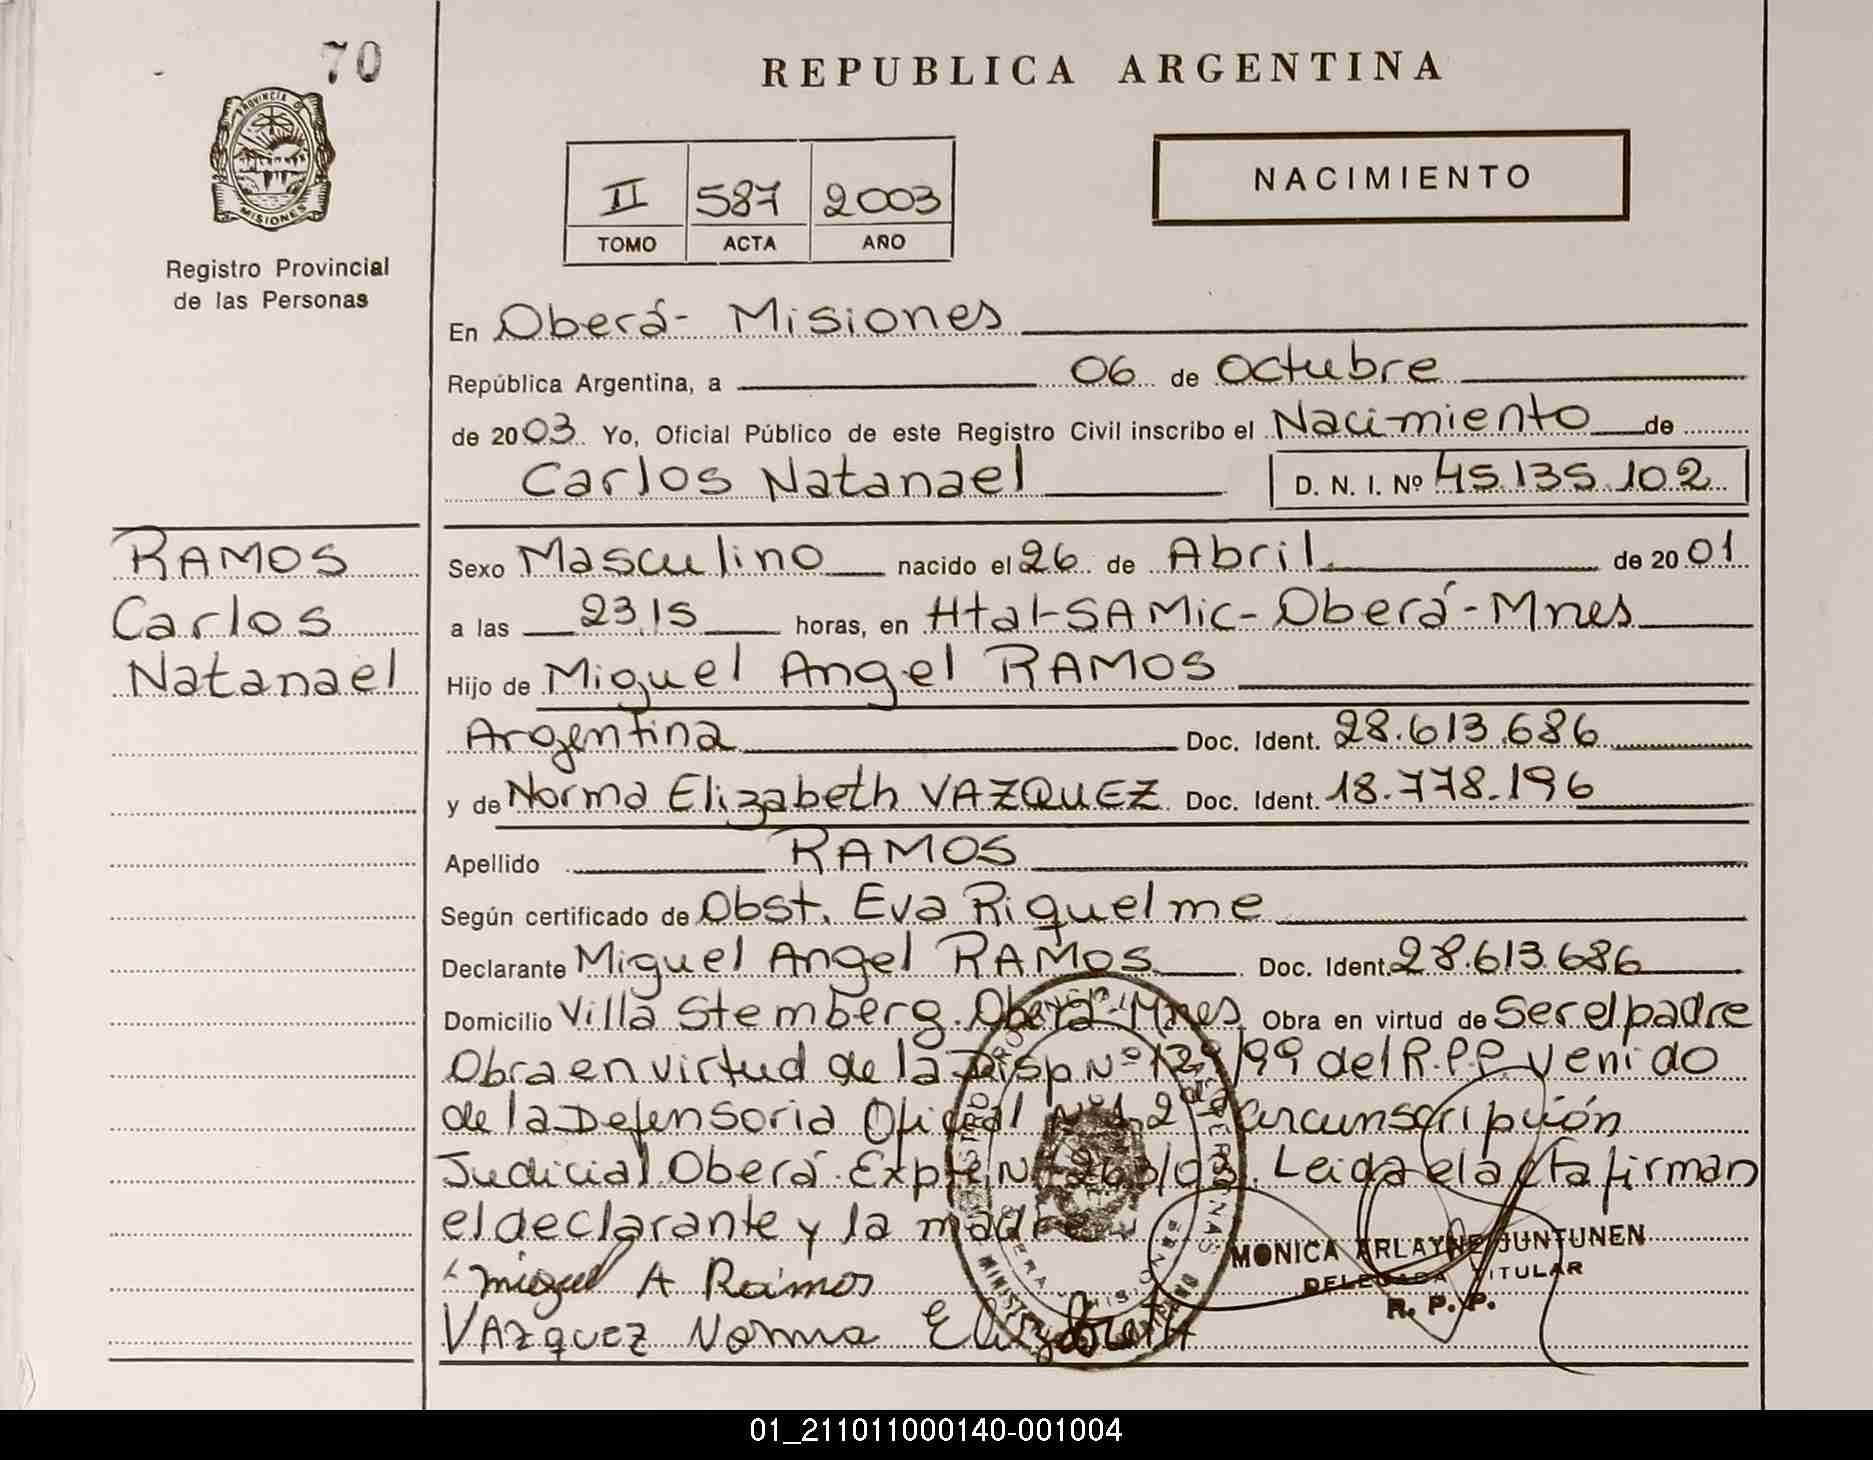 70
REPUBLICA ARGENTINA
PROVINCIA D
MISIONES
Registro Provincial
de las Personas
II 587 2003
TOMO ACTA AÑO
NACIMIENTO
En Oberá- Misiones
República Argentina, a 06 de Octubre
de 2003 Yo, Oficial Público de este Registro Civil inscribo el Nacimiento de
Carlos Natanael D. N. I. Nº 45.135.102
RAMOS
Carlos
Natanael
Sexo Masculino nacido el 26 de Abril de 2001
a las 23,15 horas, en Htal-SAMic-Oberá-Mnes
Hijo de Miguel Angel RAMOS
Argentina Doc. Ident. 28.613.686
y de Norma Elizabeth VAZQUEZ Doc. Ident. 18.778.196
Apellido RAMOS
Según certificado de Obst. Eva Riquelme
Declarante Miguel Angel RAMOS Doc. Ident. 28.613.686
Domicilio Villa Stemberg. Oberá-Mnes Obra en virtud de Ser el padre
Obra en virtud de la Disp Nº /99 del R.P.P. venido
de la Defensoria Oficial Nº1,2da circunscripción
Judicial Oberá. Expte Nº 263/03. Leida el acta firman
el declarante y la madre
Miguel A Ramos
VAzquez Norma Elizabeth
MONICA ARLAYNE JUNTUNEN
DELEGADA TITULAR
R. P. P.
01_211011000140-001004